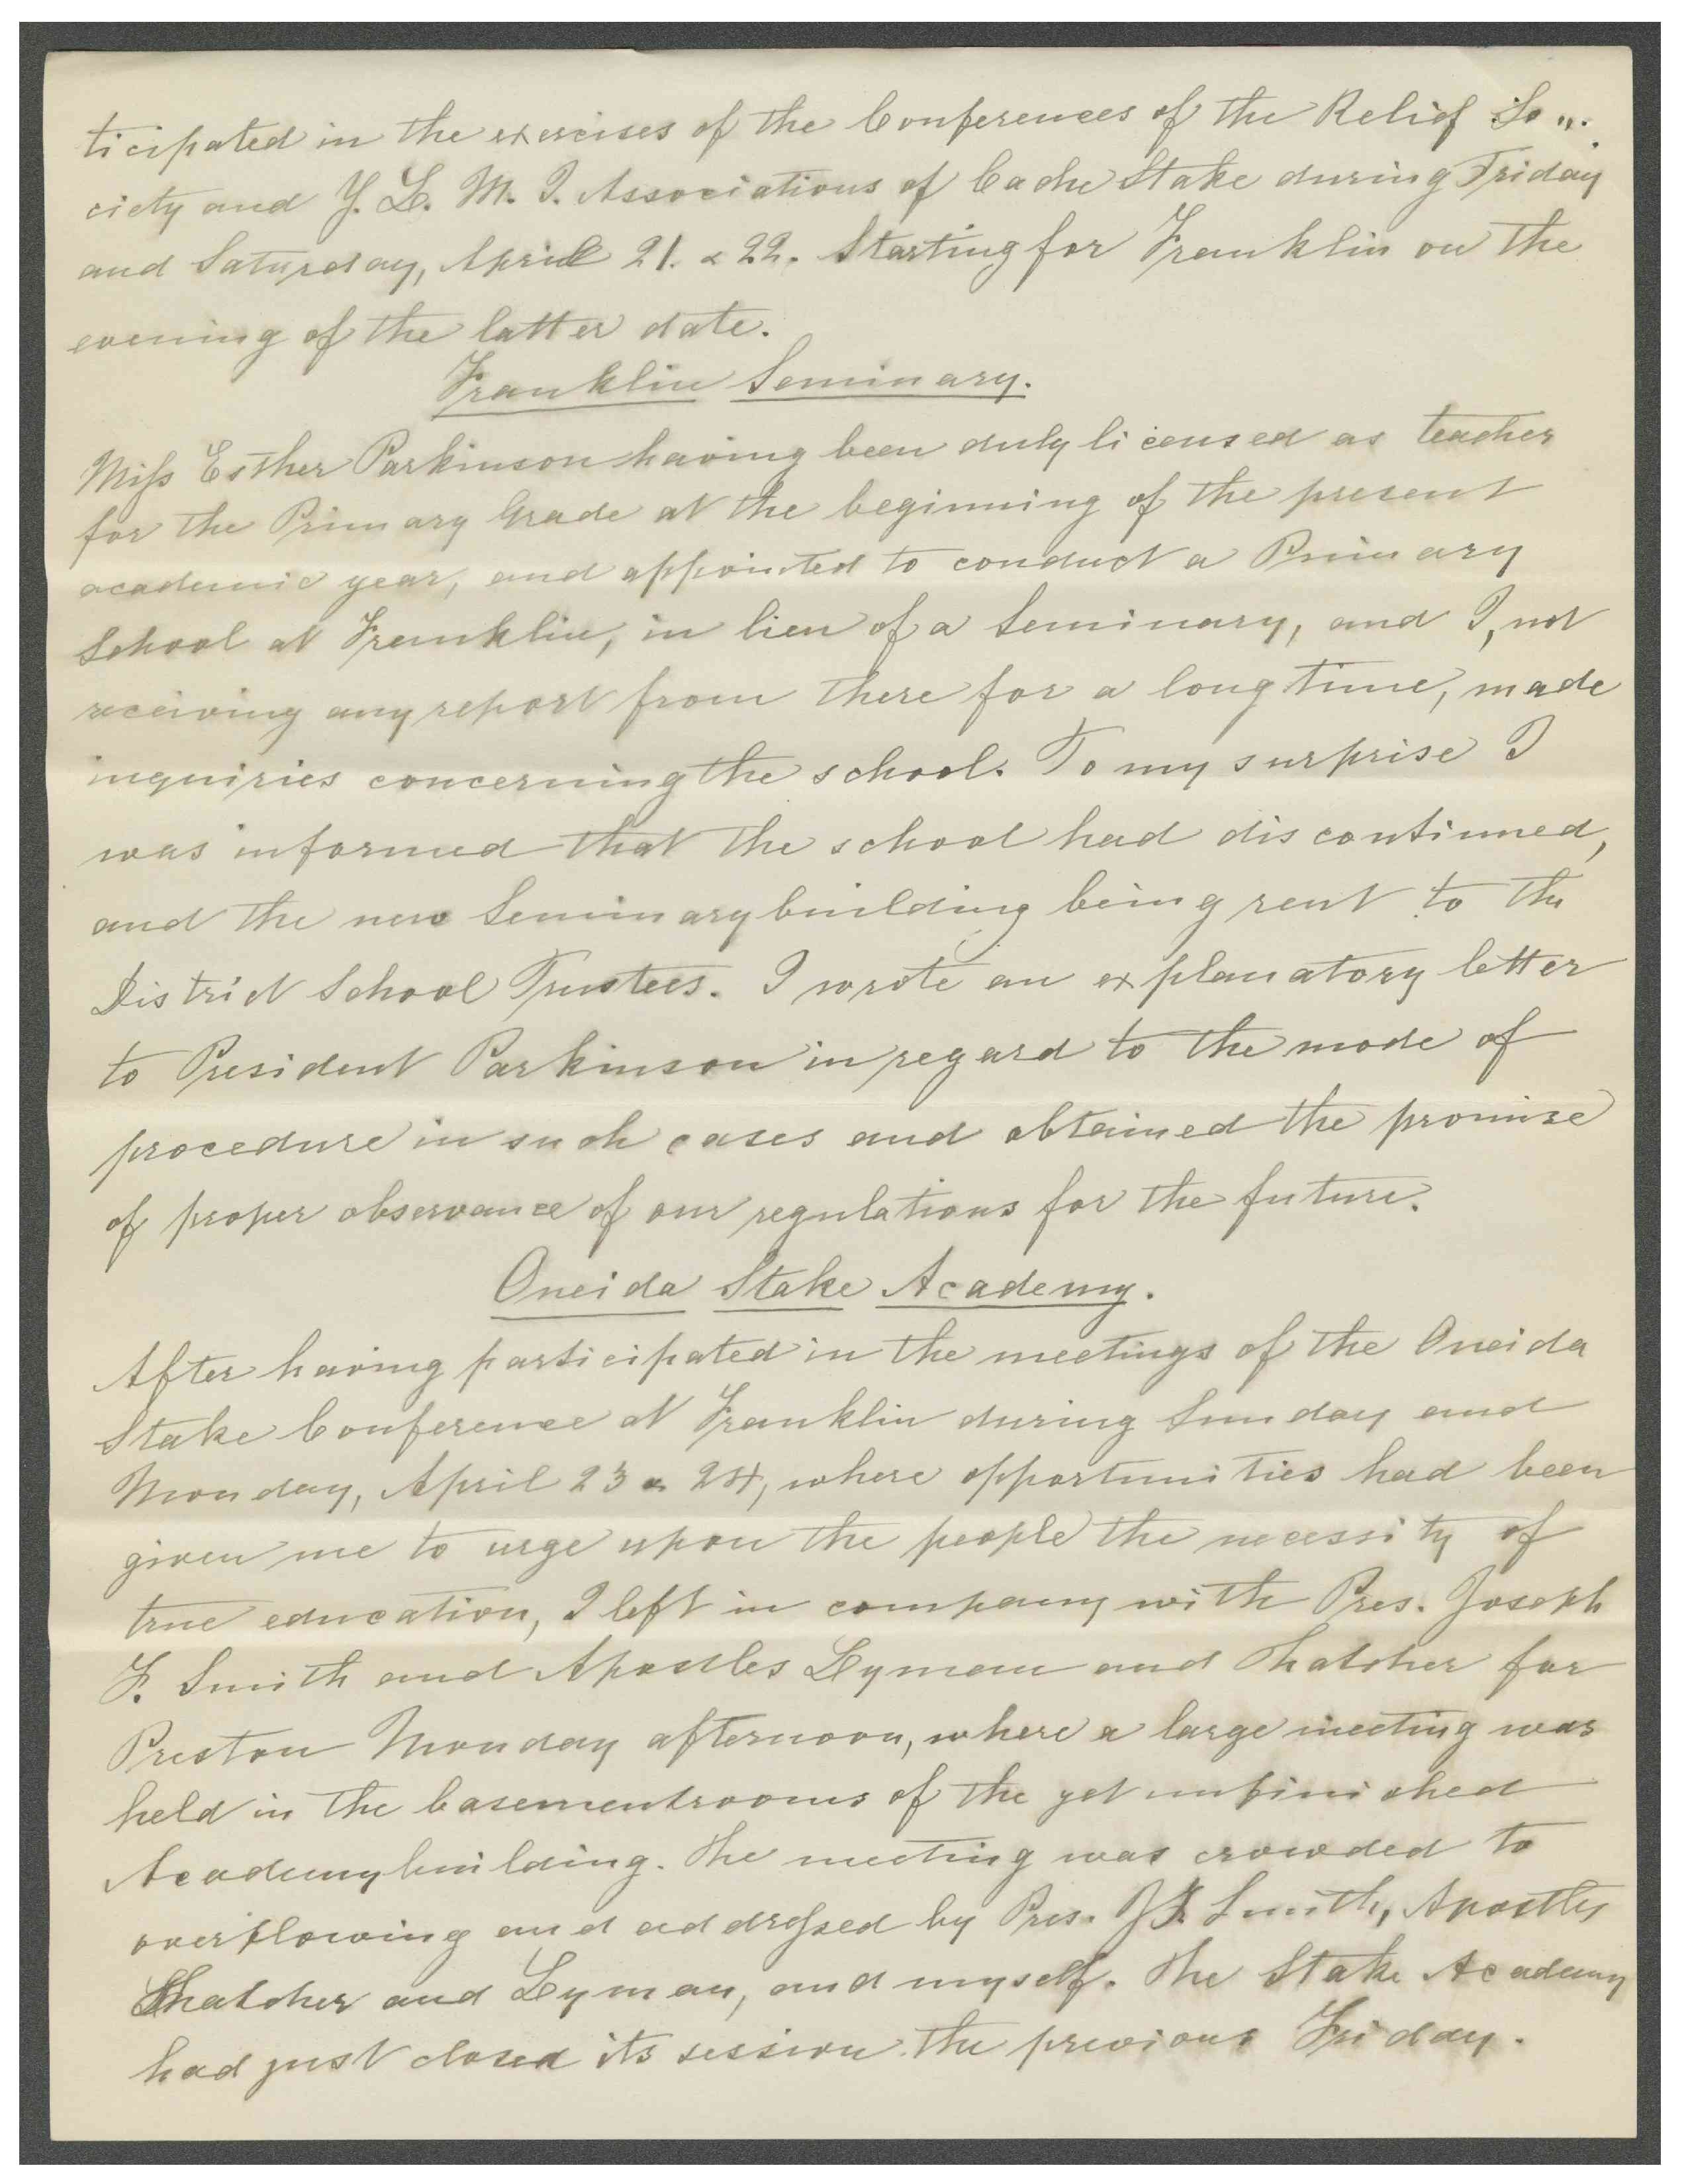 ticipated in the exercises of the Conferences of the Relief So„.
ciety and Y. L. M. I. Associations of Cache Stake during Friday
and Saturday, April 21. & 22. Starting for Franklin on the
evening of the latter date.
Franklin Seminary.
Miss Esther Parkinson having been duly licensed as teacher
for the Primary Grade at the beginning of the present
academic year, and appointed to conduct a Primary
School at Franklin, in lieu of a Seminary, and I, not
receiving any report from there for a long time, made
inquiries concerning the school. To my surprise I
was informed that the school had discontinued,
and the new Seminary building being rent to the
District School Trustees. I wrote an explanatory letter
to President Parkinson in regard to the mode of
procedure in such cases and obtained the promise
of proper observance of our regulations for the future.
Oneida Stake Academy.
After having participated in the meetings of the Oneida
Stake Conference at Franklin during Sunday and
Monday, April 23 & 24, where opportunities had been
given me to urge upon the people the necessity of
true education, I left in company with Pres. Joseph
F. Smith and Apostles Lyman and Thatcher for
Preston Monday afternoon, where a large meeting was
held in the basementrooms of the yet unfinished
Academybuilding. The meeting was crowded to
overflowing and addressed by Pres. J.F. Smith, Apostles
Thatcher and Lyman, and myself. The Stake Academy
had just closed its session the previous Friday.